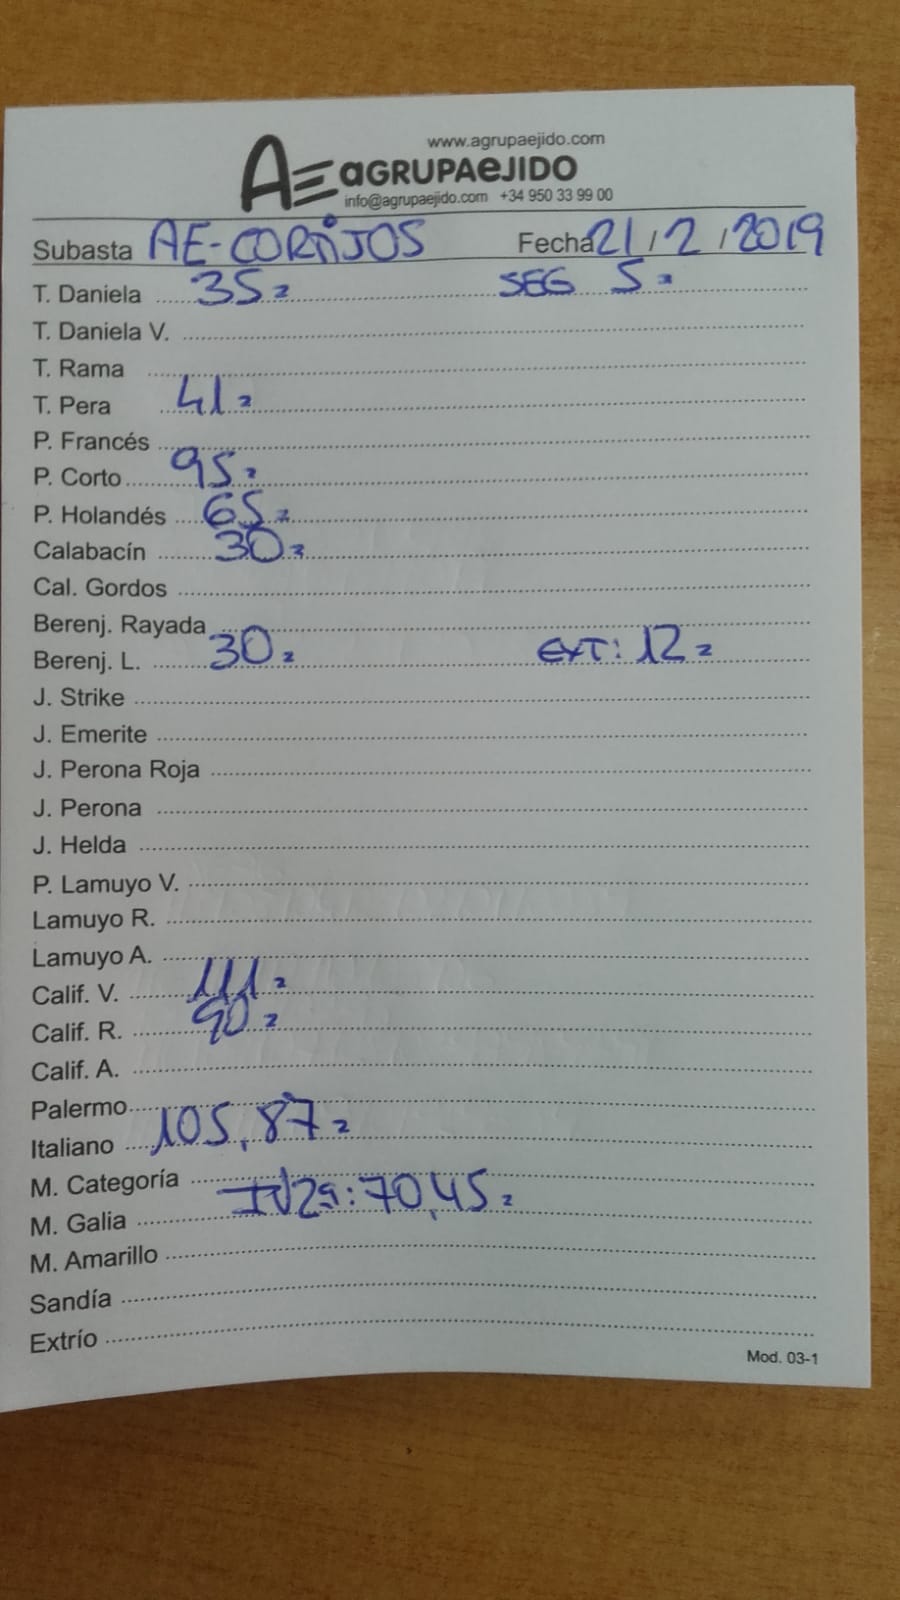 www.agrupaejido.com
AE AGRUPAEJIDO
info@agrupaejido.com +34 950 33 99 00
Subasta AE-CORTIJOS Fecha 21/2/2019
T. Daniela 35 z SEG 5 z
T. Daniela V.
T. Rama
T. Pera 41 z
P. Francés
P. Corto 95 z
P. Holandés 65 z
Calabacín 30 z
Cal. Gordos
Berenj. Rayada
Berenj. L. 30 z EXT: 12 z
J. Strike
J. Emerite
J. Perona Roja
J. Perona
J. Helda
P. Lamuyo V.
Lamuyo R.
Lamuyo A.
Calif. V. 111 z
Calif. R. 90 z
Calif. A.
Palermo
Italiano 105,87 z
M. Categoría
M. Galia 70,45 z
M. Amarillo
Sandía
Extrío
Mod. 03-1